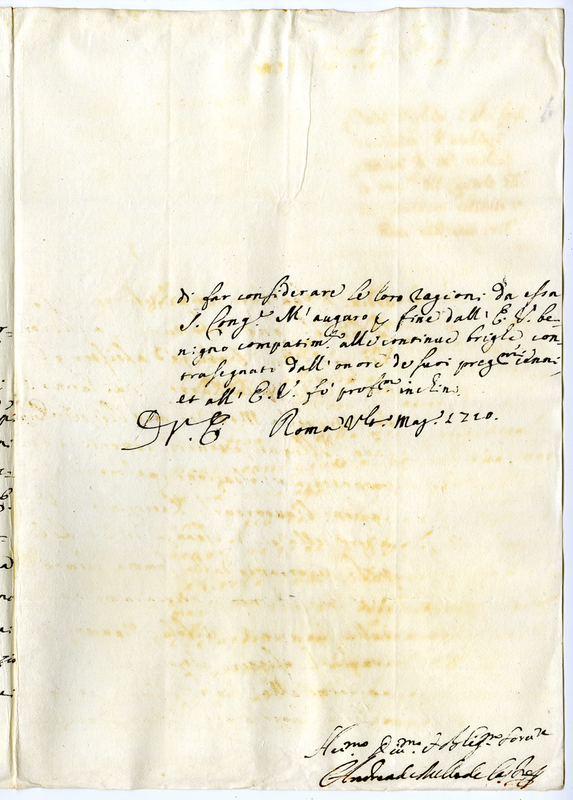 di far considerare le loro ragioni da essa
S. Cong.e M'auguro p fine dall' E. V. be-
nigno compatim.to alle continue brighe con-
trasegnati dall'onore de suoi preg.mi cenni,
et all' E. V. fò prof.mo inchin.
D V. E. Roma Ult. Mag. 1710.
Hu.mo Di.mo et Oblig.mo Serv.re
Andrea de